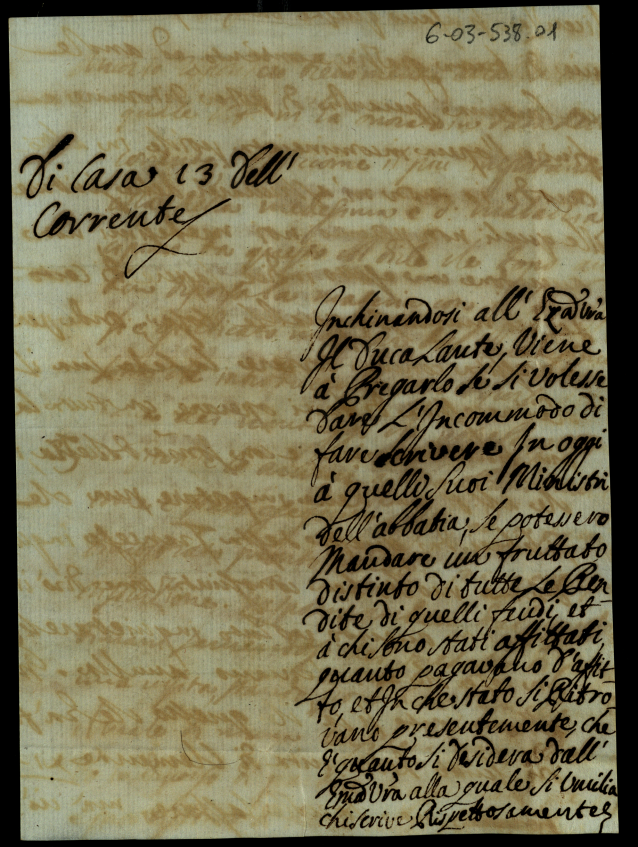 6-03-538.01
Di Casa 13 Dell'
Corrente
Inchinandosi all' Emã Vrã
Il Duca Lante, Viene
à Pregarlo se si Volesse
dare L'Incommodo di
fare scrivere In oggi
à quelli Suoi Ministri
dell'abbatia, se potessero
Mandare un fruttato
distinto di tutte Le Ren
dite di quelli feudi, et
à chi sono stati affittati
quanto pagavano d'affit-
to, et In che stato si Ritro
vano presentemente, che
è quanto si desidera dall'
Emã Vrã alla quale si Umilia
chi scrive Rispettosamente